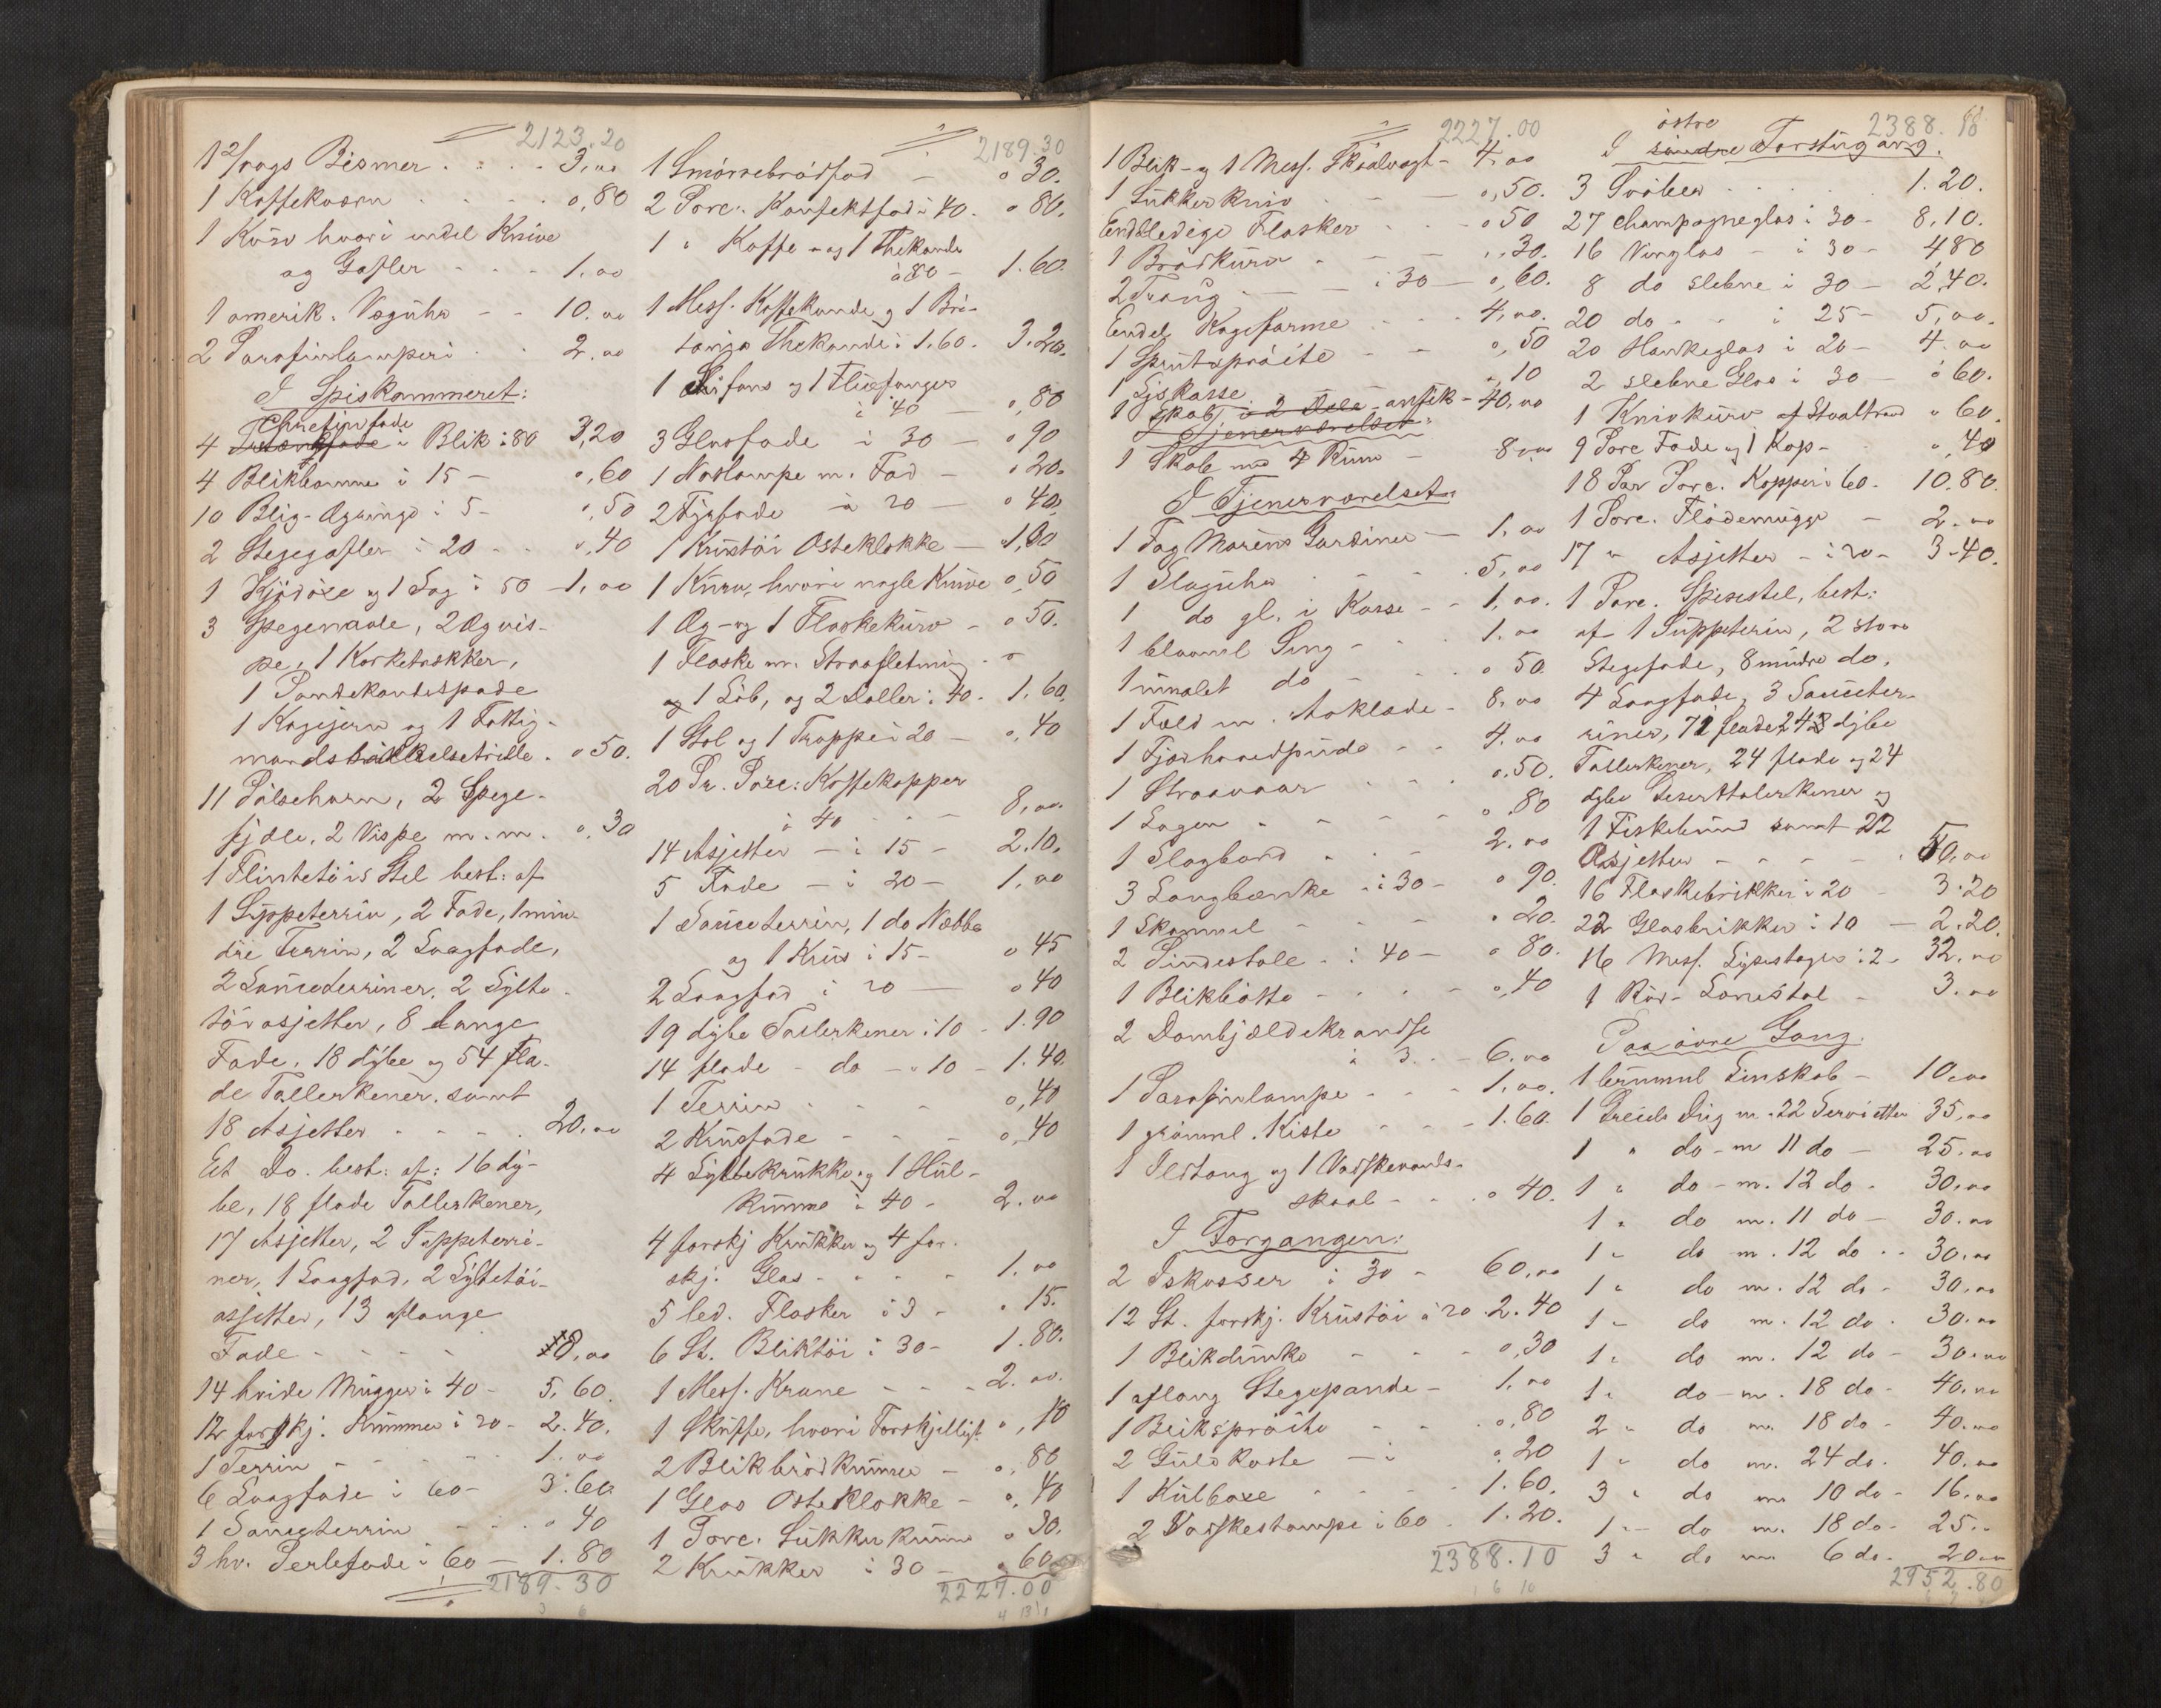 2123.20
1 2/vogs Bismer . . . . 3,00
1 Kaffekværn . . . . 0,80
1 Kurv hvori endel Knive
og Gafler - - - 1.00
1 amerik. Væguhr - - 10.00
2 Parafinlamper . . 2.00
I Spiskammeret:
Chretinfade
4 i Blik à 80 3,20
4 Blik i 15 - 0,60
10 Blig- i 5 - 0,50
2 Stegegafler i 20 . . 0,40
1 Kjødøxe og 1 Sag i 50 - 1.00
3 Spegenaale, 2 Ægvis-
pe, 1 Korketrækker,
1 Pandekagespade
1 Kagejern og 1 Fattig-
mandsbakkelsetrille . 0 50.
11 Pølsehorn, 2 Spege-
fjæle, 2 Vispe m.m. 0,30
1 Flintetøis Stel best: af
1 Suppeterrin, 2 Fade, 1 min-
dre Terrin, 2 Laagfade,
2 Sauceterriner, 2 Sylte-
tøiasjetter, 8 lange
Fade, 18 dybe og 54 fla-
de Tallerkener, samt
18 Asjetter - - - - 20.00
Et Do. best: af: 16 dy-
be, 18 flade Tallerkener,
17 Asjetter, 2 Suppeterri-
ner, 1 Laagfad, 2 Syltetøi-
asjetter, 13 aflange
Fade - - - - 18,00
14 hvide Mugger à 40 - 5.60.
12 forskj. Kummer i 20 - 2.40.
1 Terrin - - - - 1.00
6 Laagfade i 60 - 3.60
1 Sauceterrin - - 0 40
3 hv. Perlefade i 60 - 1.80
2189.30
2189.30
1 Smørrebrødfad - 0 30.
2 Porc. Konfektfad i 40. 0 80.
1 " Kaffe- og 1 Thekande
à 80 - 1.60.
1 Mess. Kaffekande og 1 Bri-
tania Thekande i 1.60. 3.20.
1 og 1 Fluefanger
i 40 - 0,80
3 Glasfade i 30 - 0 90
1 Natlampe m. Fad - 0 20.
2 Fyrfade à 20 - 0 40
1 Krustøi Osteklokke - 1,00
1 Kurv, hvori nogle Knive 0,50
1 Æg- og 1 Flaskekurv - 0 50.
1 Flaske m. Straafletning
og 1 Løb, og 2 Daller i 40. 1.60.
1 Stol og 1 Trappe i 20 - 0,40
20 Pr. Porc: Kaffekopper
à 40 - - - 8,00
14 Asjetter - i 15 - 2.10.
5 Fade - i 20 - 1,00
1 Sauceterrin, 1 do Nebba
og 1 Krus i 15 - 0 45
2 Laagfad i 20 - 0 40
19 dybe Tallerkener i 10 - 1.90
14 flade - do - " 10 - 1.40.
1 Terrin . . . . 0,40
2 Krusfade - - - 0,40
4 Syltekrukker og 1 Hul-
kumme à 40 - 2.00
4 forskj Krukker og 4 for-
skj. Glas - - - - 1.00
5 led. Flasker i 3 - 0 15.
6 St. Bliktøi i 30 - 1.80.
1 Mess. Krane - - - 2.00.
1 Skuffe, hvori Forskjelligt 0,10
2 Blikbrødkummer - 0,80
1 Glas Osteklokke - 0,40
1 Porc. Sukkerkumme 0 30.
2 Krukker i 30 - 0 60
2227.00
2227.00
1 Blik- og 1 Mess. Skaalvægt - 4.00
1 Sukkerkniv . - - 0,50.
Endel ledige Flasker - - - 0 50
1 Brødkurv - - - 0,30.
2 Traug - - - i 30 - 0,60.
Endel Kageforme - - - 4.00.
1 Sprutesprøite - - 0,50
1 Ljskasse. 0,10
1 Skab i 2 Dele antik - 40.00
Tjenerværelset:
1 Skab med 4 Rum - 8.00
I Tjenerværelset:
1 Fag Moreens Gardiner - 1.00
1 Slaguhr . - - 5,00
1 do gl. i Kasse - - 1.00.
1 blaamal Seng - - - 1.00
1 umalet do - - - 0 50.
1 Fæld m. Aaklæde - 8.00
1 Fjærhovedpude - - 4.00
1 Straavaar - - - 0.50.
1 Lagen - - - - 0,80
1 Slagbord - - - 2.00
3 Langbænke - i 30 - 0 90.
1 Skammel - - - 0 20.
2 Pindestole - i 40 - 0 80.
1 Blikbøtte - - - - 0,40
2 Dombjældekrandse
à 3 - - 6.00
1 Parafinlampe - - - 1.00.
1 grønml. Kiste - - - 1.60.
1 Ildtang og 1 Vaskevands-
skaal - - - 0 40.
I Forgangen:
2 Iskasser i 30 - 60,00
12 St. forskj. Krustøi à 20 . 2.40
1 Blikdunk - - - 0,30
1 aflang Stegepande - 1.00
1 Bliksprøite - - - 0,80
2 Gulvkoste - i 0,20
1 Kulboxe - - - - 1.60.
2 Vaskestampe i 60 . 1.20.
2388.10
2388.10
østre
I søndre Forstugang.
3 Svøber . . . . . 1.20.
27 Champagneglas i 30 - 8.10.
16 Vinglas - i 30 - 4,80
8 do slebne i 30 - 2,40.
20 do - - i 25 - 5,00.
20 Hankeglas i 20 - 4.00
2 slebne Glas i 30 - 0 60.
1 Knivkurv af Staaltraad 0 60.
9 Porc Fade og 1 Kop - 0,40
18 Par Porc. Kopper i 60 - 10.80.
1 Porc. Flødemugge - 2.00
17 " Asjetter - i 20 - 3.40.
1 Porc. Spisestel, best:
af 1 Suppeterrin, 2 store
Stegefade, 8 mindre do,
4 Laagfade, 3 Sauceter-
riner, 71 flade, 24 dybe
Tallerkener, 24 flade og 24
dybe Deserttalerkener og
1 Fiskebund samt 22
Asjetter - - - - 50,00
16 Flaskebrikker i 20 - 3.20
22 Glasbrikker i 10 - 2.20.
16 Mess. Lysestager i 2 - 32.00
1 Rør- Lænestol - 3.00
Paa øvre Gang.
1 brunml Linskab - 10.00
1 Dreiels Dug m. 22 Servietter 35,00
1 " do - m 11 do - 25.00
1 " do - m. 12 do - 30,00
1 " do m. 11 do - 30.00
1 " do m. 12 do . . 30.00
1 " do m. 12 do - 30,00
1 " do m. 12 do . 30.00
1 " do m. 12 do - 30.00
1 " do - m. 18 do - 40,00
2 " do m. 18 do - 40.00
1 " do m. 24 do . 40.00
3 " do m. 10 do - 16.00
1 " - do m. 18 do - 25.-
3 " do m. 6 do - 20.00
2952.80